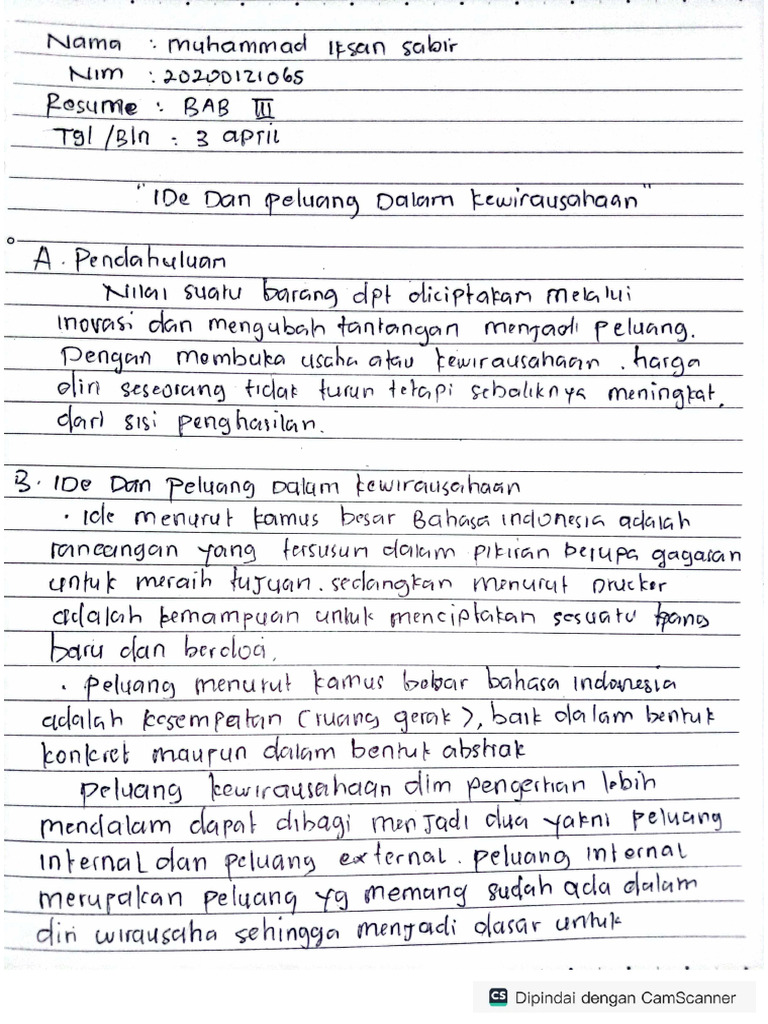 Nama : muhammad Iksan Sabir
Nim : 20200121065
Resume : BAB III
Tgl /Bln : 3 April
"IDe Dan Peluang Dalam kewirausahaan"
A. Pendahuluan
Nilai suatu barang dpt diciptakam melalui
inovasi dan mengubah tantangan menjadi peluang.
Dengan membuka usaha atau kewirausahaan. harga
diri seseorang tidak turun tetapi sebaliknya meningkat.
dari sisi penghasilan.
B. IDe Dan Peluang Dalam kewirausahaan
• Ide menurut kamus besar Bahasa indonesia adalah
rancangan yang tersusun dalam pikiran berupa gagasan
untuk meraih tujuan. sedangkan menurut Drucker
adalah kemampuan untuk menciptakan sesuatu yang
baru dan
• Peluang menurut kamus bahasa indonesia
adalah kesempatan (ruang gerak), baik dalam bentuk
konkret maupun dalam bentuk abstrak
Peluang kewirausahaan dlm pengertian lebih
mendalam dapat dibagi menjadi dua yakni peluang
internal dan peluang external. peluang internal
merupakan peluang yg memang sudah ada dalam
diri wirausaha sehingga menjadi dasar untuk
CS Dipindai dengan CamScanner